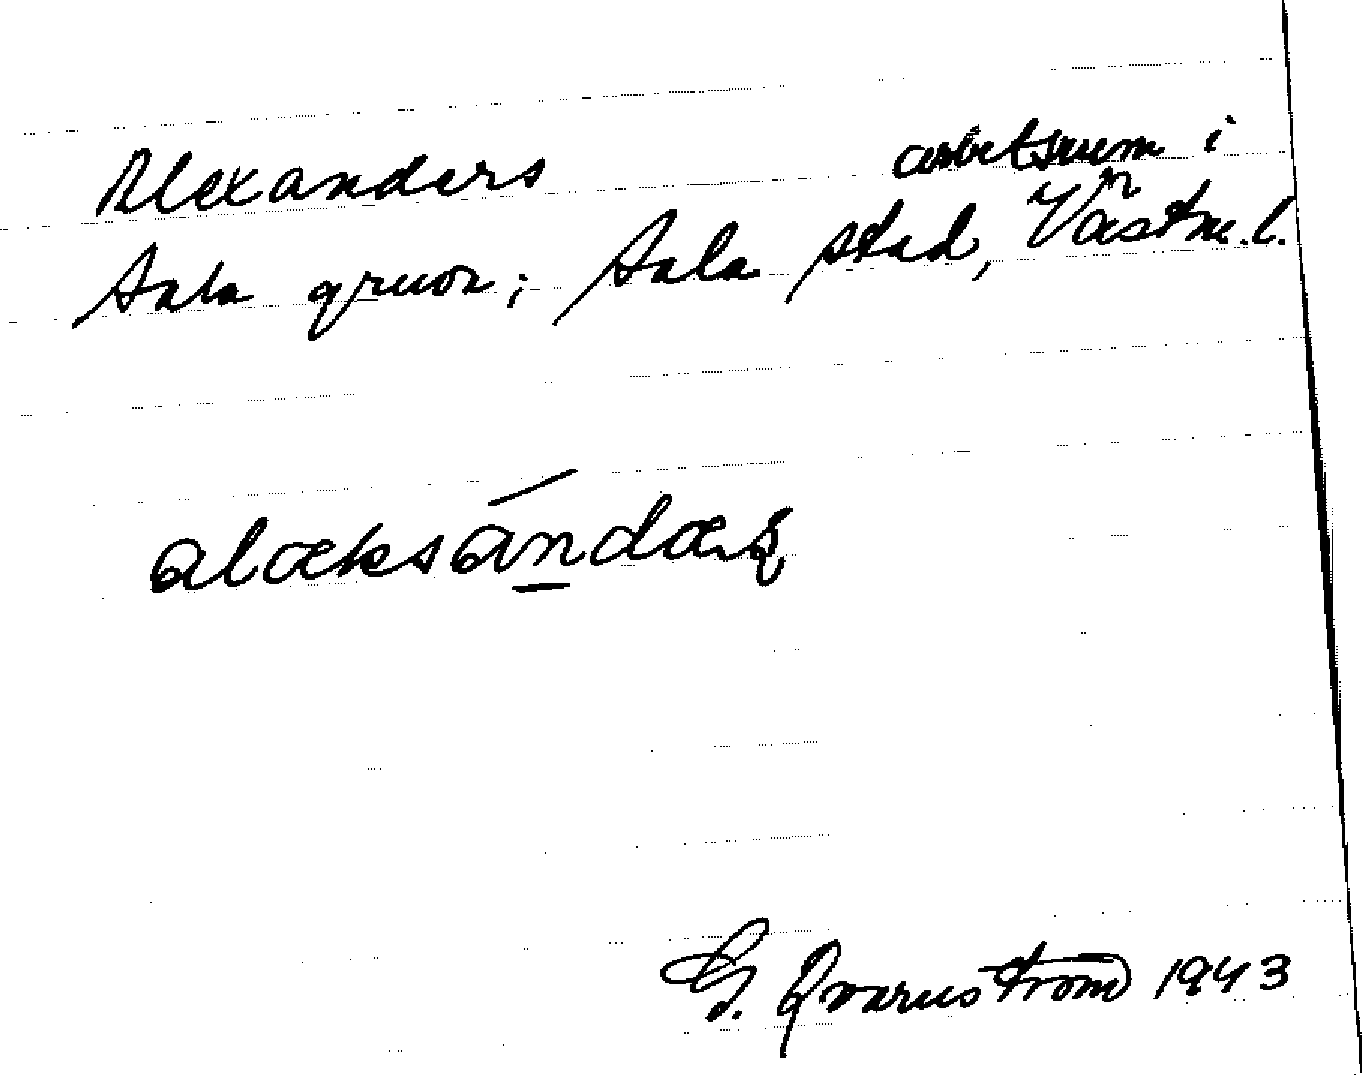 Alexanders arbetsrum i
Sala gruva; Sala stad, Västm. l.
alæksándæʂ
G. Qvarnström 1943